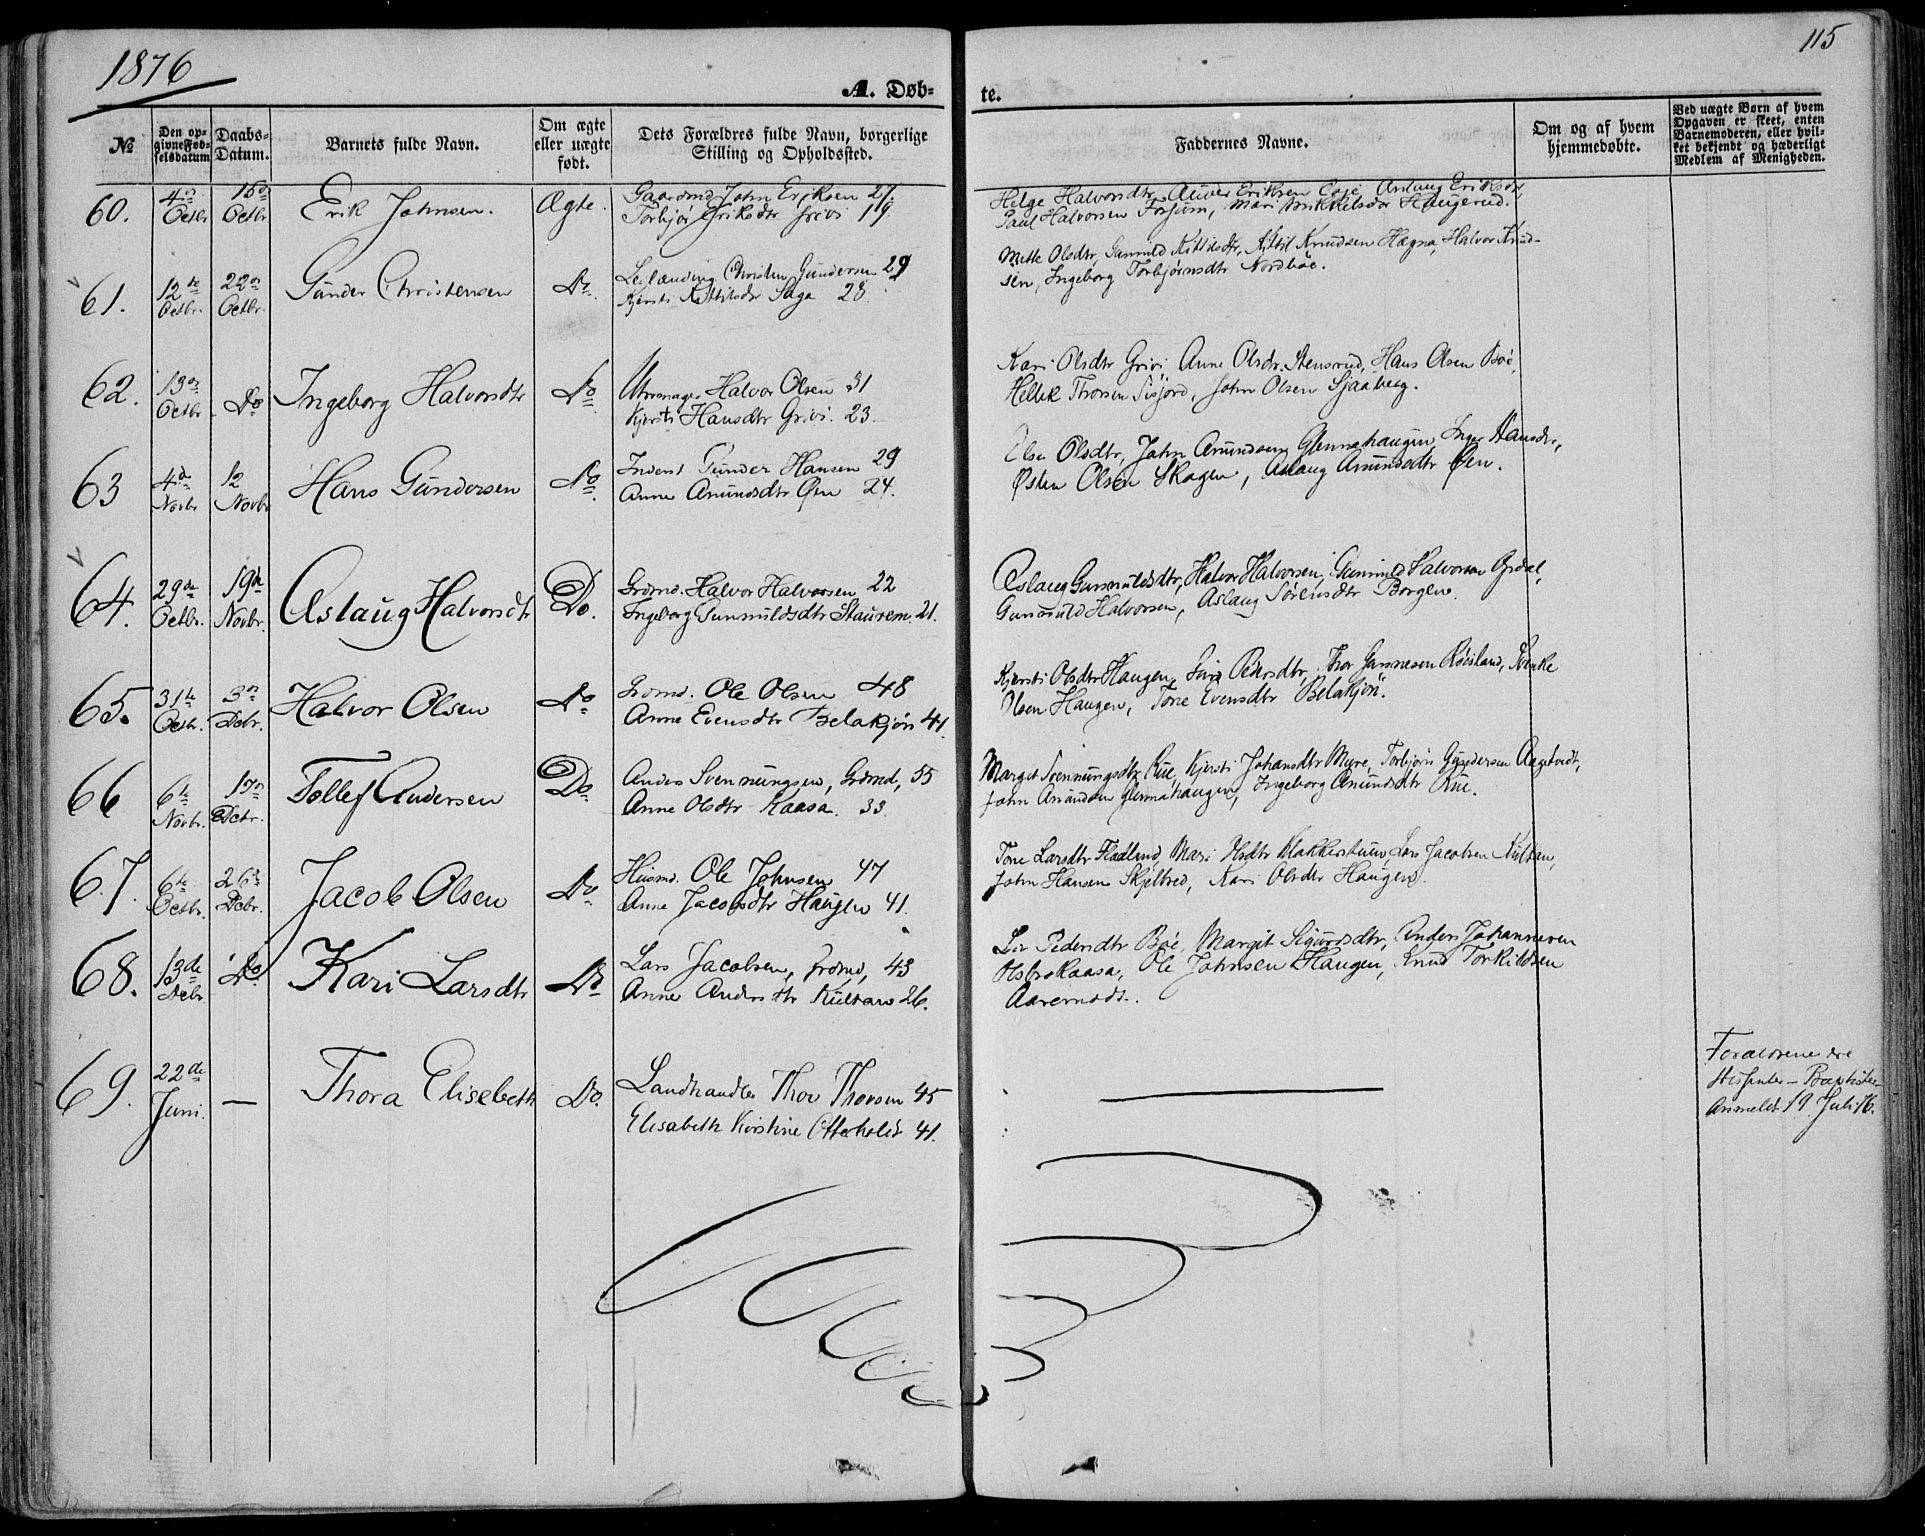 1876
115
A. Døb-
te.
No
Den op-
givne Fød-
selsdatum
Daabs-
Datum.
Barnets fulde Navn.
Om ægte
eller uægte
født.
Dets Forældres fulde Navn, borgerlige
Stilling og Opholdssted.
Faddernes Navne.
Om og af hvem
hjemmedøbte.
Ved uægte Børn af hvem
Opgaven er skeet, enten
Barnemoderen, eller hvil-
ket bekjendt og hæderligt
Medlem af Menigheden.
60.
4de
Octbr
15de
Octbr
Erik Johnsen.
Ægte.
Gaardmd John Eriksen 27.
Torbjør Eriksdtr Grivi 19
Helge Halvorsdtr, Eriksen Eriksdtr
Paul Halvorsen Forsum, Mari Mikkelsdtr Haugerud.
61.
12te
Octbr.
22de
Octbr.
Gunder Christensen
Do.
Leilænding Christen Gundersen 29
Kjersti Kittilsdtr Saga 28
Mette Olsdtr, Gunnild Kittilsdtr, Kittil Knudsen Hægna, Halvor Knud-
sen, Ingeborg Torbjørnsdtr Nordbøe.
62.
13de
Octbr
Do
Ingeborg Halvorsdtr
Do.
Uhrmager Halvor Olsen 31
Kjersti Hansdtr Grivi. 23.
Kari Olsdtr Grivi, Anne Olsdtr Stensrud, Hans Olsen Boe,
Hellek Thorsen Sisjord, John Olsen Sjaaberg.
63
4de
Novbr
12
Novbr
Hans Gundersen
Do.
Inderst Gunder Hansen 29
Anne Amundsdtr Øen 24.
Else Olsdtr, John Amundsen Glennehaugen, Inger Hansdtr,
Østen Olsen Skogen, Aslaug Amundsdtr Øen.
64.
29de
Octbr.
19de
Novbr.
Aslaug Halvorsdtr
Do.
Grdmd. Halvor Halvorsen 22
Ingeborg Gunnuldsdtr Staurem. 21.
Aslaug Gunnuldsdtr, Halvor Halvorsen, Gunnild Halvorsen Grdal,
Gunnuld Halvorsen, Aslaug Sørensdtr Borgen.
65.
31te
Octbr.
3de
Debr.
Halvor Olsen
Do
Grdmd. Ole Olsen 48
Anne Evensdtr Belakjøn 41.
Kjersti Olsdtr Haugen, Pedersdtr, Thor Gunnesen Røisland, Svenke
Olsen Haugen, Tone Evensdtr Belakjøn.
66
6te
Novbr.
17de
Debr.
Tollef Andersen
Do.
Anders Svennungsen, Grdmd, 55
Anne Olsdtr Kaasa. 33.
Margit Svennungsdtr Rue, Kjersti Johansdtr Myre, Torbjørn Gundersen Aagetvedt,
John Amundsen Glennehaugen, Ingeborg Amundsdtr Rue.
67.
6te
Octbr.
26de
Debr.
Jacob Olsen
Do
Husmd. Ole Johnsen 47
Anne Jacobsdtr Haugen 41.
Tone Larsdtr Fladland, Mari Olsdtr Klakkerstuen, Lars Jacobsen Kultan,
John Hansen Skjeltred, Kari Olsdtr Haugen.
68.
13de
Debr
Do
Kari Larsdtr
Do
Lars Jacobsen, Grdmd, 43
Anne Andersdtr Kultan 26.
Liv Pedersdtr Bøe, Margit Sigurdsdtr, Anders Johannesen
Olsbrokaasa, Ole Johnsen Haugen, Knud Torkildsen
Aarenes.
69.
22de
Juni.
—
Thora Elisebeth
Do.
Landhandler Thor Thorsen 45
Elisabeth Kirstine Otterholdt 41.
Forældrene ere
Dissenter – Baptister
Anmeldt 19 Juli 76.